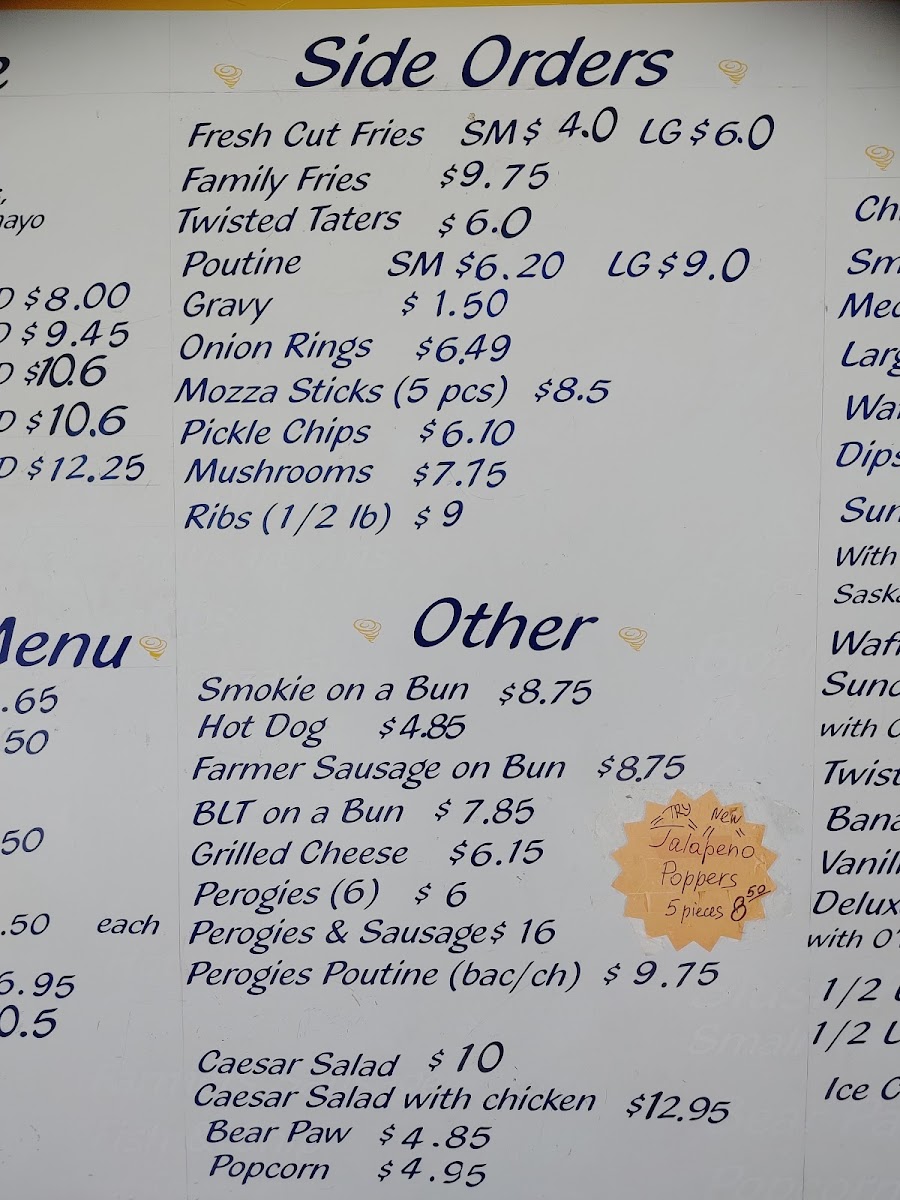 mayo
$8.00
$9.45
$10.6
$10.6
$12.25
Menu
.65
50
50
.50 each
6.95
0.5
Side Orders
Fresh Cut Fries SM $ 4.0 LG $6.0
Family Fries $9.75
Twisted Taters $6.0
Poutine SM $6.20 LG $9.0
Gravy $ 1.50
Onion Rings $6.49
Mozza Sticks (5 pcs) $8.5
Pickle Chips $6.10
Mushrooms $7.75
Ribs (1/2 lb) $ 9
Other
Smokie on a Bun $8.75
Hot Dog $4.85
Farmer Sausage on Bun $8.75
BLT on a Bun $ 7.85
Grilled Cheese $6.15
Perogies (6) $ 6
Perogies & Sausage $ 16
Perogies Poutine (bac/ch) $ 9.75
TRY New
Jalapeno
Poppers
5 pieces 8 50
Caesar Salad $ 10
Caesar Salad with chicken $12.95
Bear Paw $4.85
Popcorn $4.95
Ch
Sm
Med
Larg
Waf
Dips
Sun
With
Saska
Waff
Sund
with
Twist
Bana
Vanill
Delux
with O'
1/2
1/2 L
Ice C